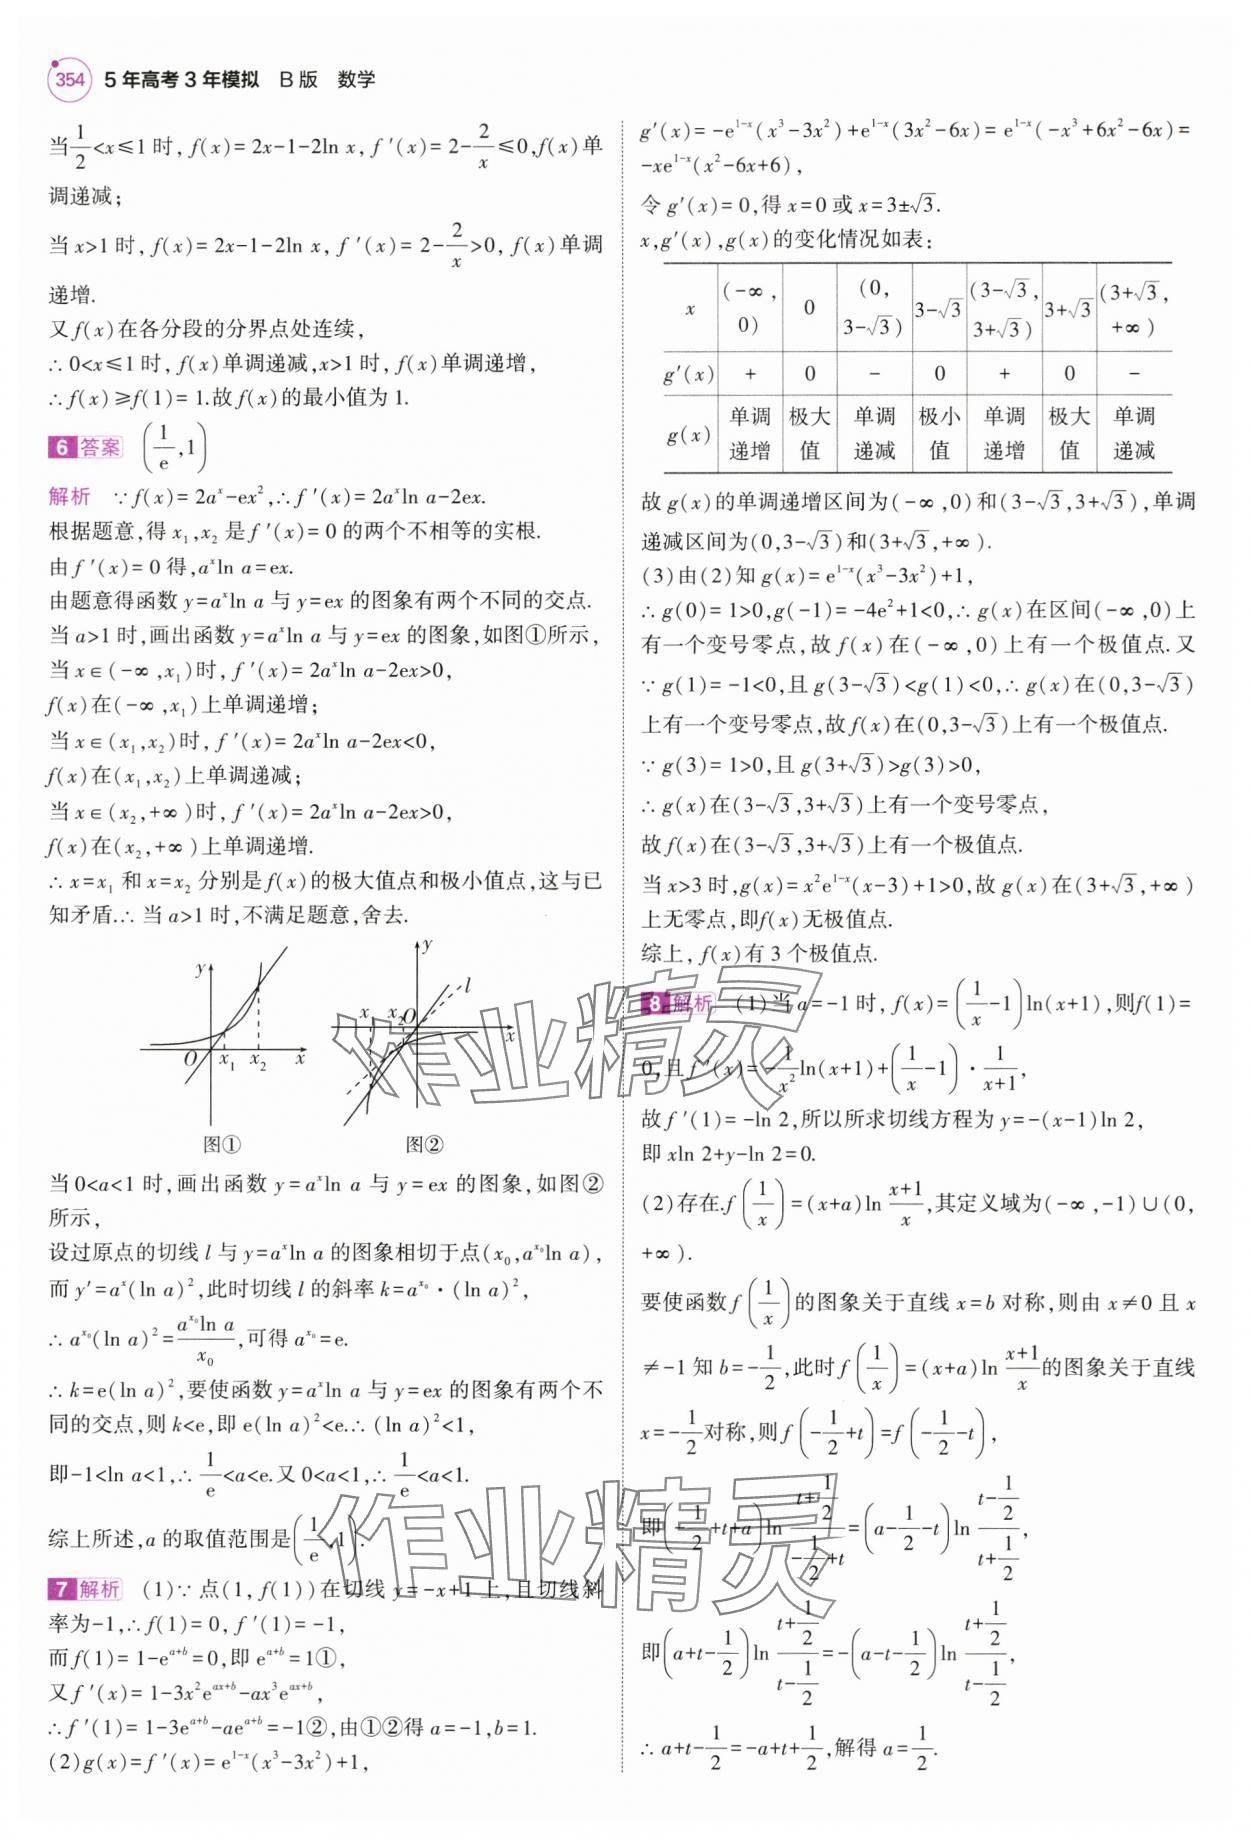 354 5年高考3年模拟 B版 数学
当1/2<x≤1时,f(x)=2x-1-2ln x,f′(x)=2-2/x≤0,f(x)单
调递减;
当x>1时,f(x)=2x-1-2ln x,f′(x)=2-2/x>0,f(x)单调
递增.
又f(x)在各分段的分界点处连续,
∴0<x≤1时,f(x)单调递减,x>1时,f(x)单调递增,
∴f(x)≥f(1)=1.故f(x)的最小值为1.
6 答案 (1/e,1)
解析 ∵f(x)=2aˣ-ex²,∴f′(x)=2aˣln a-2ex.
根据题意,得x₁,x₂是f′(x)=0的两个不相等的实根.
由f′(x)=0得,aˣln a=ex.
由题意得函数y=aˣln a与y=ex的图象有两个不同的交点.
当a>1时,画出函数y=aˣln a与y=ex的图象,如图①所示,
当x∈(-∞,x₁)时,f′(x)=2aˣln a-2ex>0,
f(x)在(-∞,x₁)上单调递增;
当x∈(x₁,x₂)时,f′(x)=2aˣln a-2ex<0,
f(x)在(x₁,x₂)上单调递减;
当x∈(x₂,+∞)时,f′(x)=2aˣln a-2ex>0,
f(x)在(x₂,+∞)上单调递增.
∴x=x₁和x=x₂分别是f(x)的极大值点和极小值点,这与已
知矛盾.∴当a>1时,不满足题意,舍去.
y O x₁ x₂ x
y l x₁ x₂ O x
图① 图②
当0<a<1时,画出函数y=aˣln a与y=ex的图象,如图②
所示,
设过原点的切线l与y=aˣln a的图象相切于点(x₀,a^(x₀)ln a),
而y′=aˣ(ln a)²,此时切线l的斜率k=a^(x₀)·(ln a)²,
∴a^(x₀)(ln a)²=a^(x₀)ln a/x₀,可得a^(x₀)=e.
∴k=e(ln a)²,要使函数y=aˣln a与y=ex的图象有两个不
同的交点,则k<e,即e(ln a)²<e.∴(ln a)²<1,
即-1<ln a<1,∴1/e<a<e.又0<a<1,∴1/e<a<1.
综上所述,a的取值范围是(1/e,1).
7 解析 (1)∵点(1,f(1))在切线y=-x+1上,且切线斜
率为-1,∴f(1)=0,f′(1)=-1,
而f(1)=1-e^(a+b)=0,即e^(a+b)=1①,
又f′(x)=1-3x²e^(ax+b)-ax³e^(ax+b),
∴f′(1)=1-3e^(a+b)-ae^(a+b)=-1②,由①②得a=-1,b=1.
(2)g(x)=f′(x)=e^(1-x)(x³-3x²)+1,
g′(x)=-e^(1-x)(x³-3x²)+e^(1-x)(3x²-6x)=e^(1-x)(-x³+6x²-6x)=
-xe^(1-x)(x²-6x+6),
令g′(x)=0,得x=0或x=3±√3.
x,g′(x),g(x)的变化情况如表:
x (-∞,0) 0 (0,3-√3) 3-√3 (3-√3,3+√3) 3+√3 (3+√3,+∞)
g′(x) + 0 - 0 + 0 -
g(x) 单调递增 极大值 单调递减 极小值 单调递增 极大值 单调递减
故g(x)的单调递增区间为(-∞,0)和(3-√3,3+√3),单调
递减区间为(0,3-√3)和(3+√3,+∞).
(3)由(2)知g(x)=e^(1-x)(x³-3x²)+1,
∴g(0)=1>0,g(-1)=-4e²+1<0,∴g(x)在区间(-∞,0)上
有一个变号零点,故f(x)在(-∞,0)上有一个极值点.又
∵g(1)=-1<0,且g(3-√3)<g(1)<0,∴g(x)在(0,3-√3)
上有一个变号零点,故f(x)在(0,3-√3)上有一个极值点.
∵g(3)=1>0,且g(3+√3)>g(3)>0,
∴g(x)在(3-√3,3+√3)上有一个变号零点,
故f(x)在(3-√3,3+√3)上有一个极值点.
当x>3时,g(x)=x²e^(1-x)(x-3)+1>0,故g(x)在(3+√3,+∞)
上无零点,即f(x)无极值点.
综上,f(x)有3个极值点.
8 解析 (1)当a=-1时,f(x)=(1/x-1)ln(x+1),则f(1)=
0,且f′(x)=-1/x²ln(x+1)+(1/x-1)·1/(x+1),
故f′(1)=-ln 2,所以所求切线方程为y=-(x-1)ln 2,
即xln 2+y-ln 2=0.
(2)存在.f(1/x)=(x+a)ln (x+1)/x,其定义域为(-∞,-1)∪(0,
+∞).
要使函数f(1/x)的图象关于直线x=b对称,则由x≠0且x
≠-1知b=-1/2,此时f(1/x)=(x+a)ln (x+1)/x的图象关于直线
x=-1/2对称,则f(-1/2+t)=f(-1/2-t),
即(-1/2+t+a)ln (t+1/2)/(-1/2+t)=(a-1/2-t)ln (t-1/2)/(t+1/2),
即(a+t-1/2)ln (t+1/2)/(t-1/2)=-(a-t-1/2)ln (t+1/2)/(t-1/2),
∴a+t-1/2=-a+t+1/2,解得a=1/2.
作业精灵
作业精灵